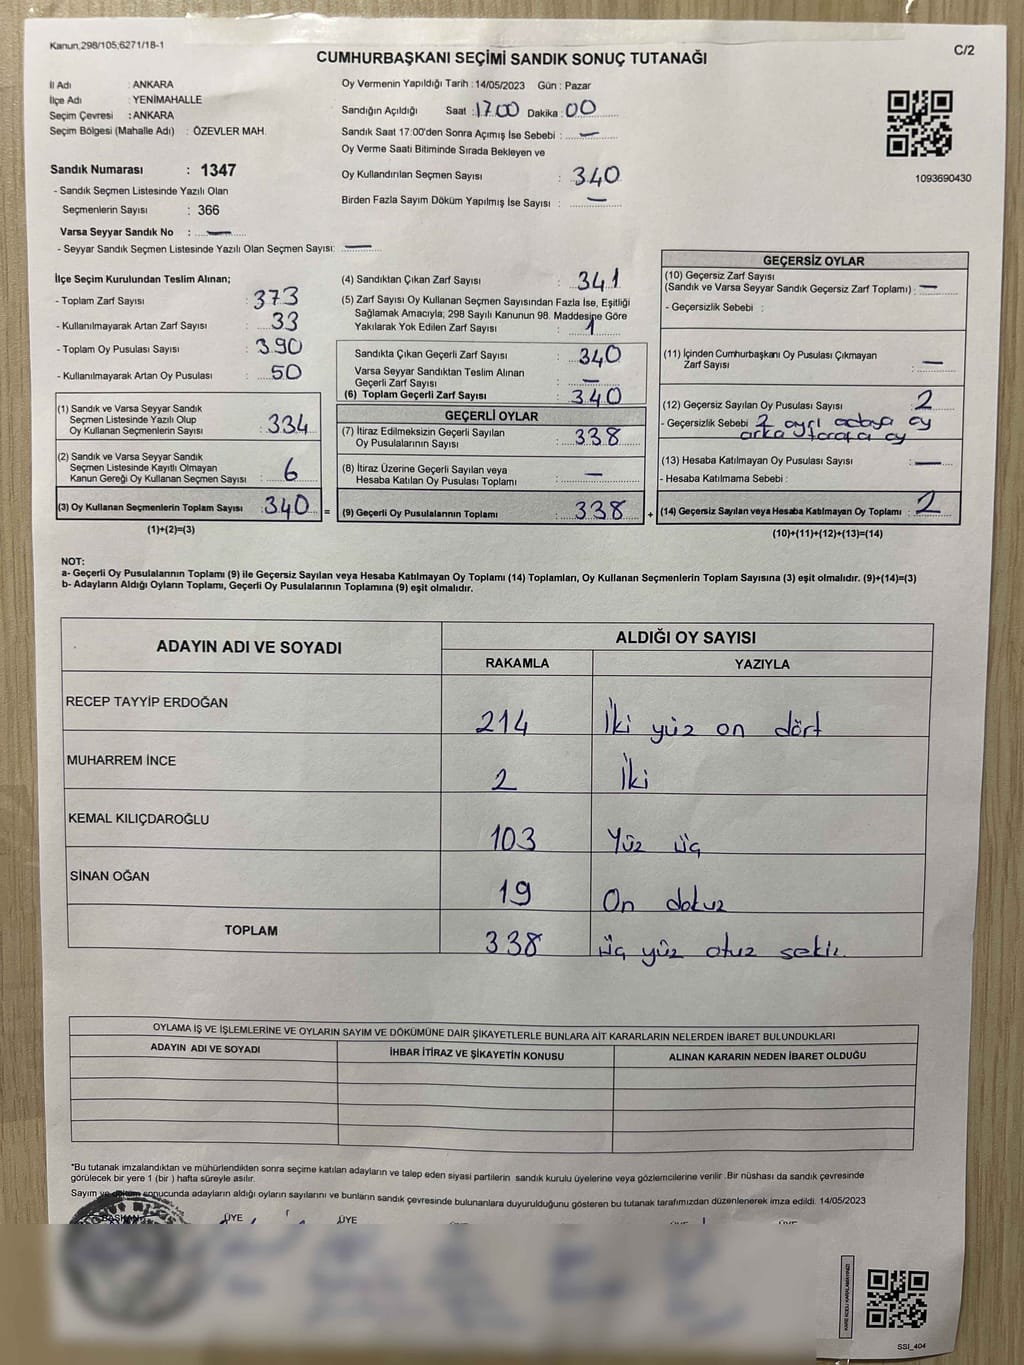 Kanun,298/105;6271/18-1
C/2
CUMHURBAŞKANI SEÇİMİ SANDIK SONUÇ TUTANAĞI
İl Adı : ANKARA
İlçe Adı : YENİMAHALLE
Seçim Çevresi : ANKARA
Seçim Bölgesi (Mahalle Adı) : ÖZEVLER MAH.
Sandık Numarası : 1347
- Sandık Seçmen Listesinde Yazılı Olan
Seçmenlerin Sayısı : 366
Varsa Seyyar Sandık No : —
- Seyyar Sandık Seçmen Listesinde Yazılı Olan Seçmen Sayısı: —
Oy Vermenin Yapıldığı Tarih : 14/05/2023 Gün : Pazar
Sandığın Açıldığı Saat : 17.00 Dakika : 00
Sandık Saat 17:00'den Sonra Açımış İse Sebebi : —
Oy Verme Saati Bitiminde Sırada Bekleyen ve
Oy Kullandırılan Seçmen Sayısı : 340
Birden Fazla Sayım Döküm Yapılmış İse Sayısı : —
1093690430
İlçe Seçim Kurulundan Teslim Alınan;
- Toplam Zarf Sayısı : 373
- Kullanılmayarak Artan Zarf Sayısı : 33
- Toplam Oy Pusulası Sayısı : 390
- Kullanılmayarak Artan Oy Pusulası : 50
(1) Sandık ve Varsa Seyyar Sandık
Seçmen Listesinde Yazılı Olup
Oy Kullanan Seçmenlerin Sayısı : 334
(2) Sandık ve Varsa Seyyar Sandık
Seçmen Listesinde Kayıtlı Olmayan
Kanun Gereği Oy Kullanan Seçmen Sayısı : 6
(3) Oy Kullanan Seçmenlerin Toplam Sayısı : 340 =
(1)+(2)=(3)
(4) Sandıktan Çıkan Zarf Sayısı : 341
(5) Zarf Sayısı Oy Kullanan Seçmen Sayısından Fazla İse, Eşitliği
Sağlamak Amacıyla; 298 Sayılı Kanunun 98. Maddesine Göre
Yakılarak Yok Edilen Zarf Sayısı : 1
Sandıkta Çıkan Geçerli Zarf Sayısı : 340
Varsa Seyyar Sandıktan Teslim Alınan
Geçerli Zarf Sayısı : —
(6) Toplam Geçerli Zarf Sayısı : 340
GEÇERLİ OYLAR
(7) İtiraz Edilmeksizin Geçerli Sayılan
Oy Pusulalarının Sayısı : 338
(8) İtiraz Üzerine Geçerli Sayılan veya
Hesaba Katılan Oy Pusulası Toplamı : —
(9) Geçerli Oy Pusulalarının Toplamı : 338 +
GEÇERSİZ OYLAR
(10) Geçersiz Zarf Sayısı
(Sandık ve Varsa Seyyar Sandık Geçersiz Zarf Toplamı) : —
- Geçersizlik Sebebi :
(11) İçinden Cumhurbaşkanı Oy Pusulası Çıkmayan
Zarf Sayısı : —
(12) Geçersiz Sayılan Oy Pusulası Sayısı : 2
- Geçersizlik Sebebi 2 ayrı adaya oy
arka tarafa oy
(13) Hesaba Katılmayan Oy Pusulası Sayısı : —
- Hesaba Katılmama Sebebi :
(14) Geçersiz Sayılan veya Hesaba Katılmayan Oy Toplamı : 2
(10)+(11)+(12)+(13)=(14)
NOT:
a- Geçerli Oy Pusulalarının Toplamı (9) ile Geçersiz Sayılan veya Hesaba Katılmayan Oy Toplamı (14) Toplamları, Oy Kullanan Seçmenlerin Toplam Sayısına (3) eşit olmalıdır. (9)+(14)=(3)
b- Adayların Aldığı Oyların Toplamı, Geçerli Oy Pusulalarının Toplamına (9) eşit olmalıdır.
ADAYIN ADI VE SOYADI
ALDIĞI OY SAYISI
RAKAMLA YAZIYLA
RECEP TAYYİP ERDOĞAN 214 İki yüz on dört
MUHARREM İNCE 2 İki
KEMAL KILIÇDAROĞLU 103 Yüz üç
SİNAN OĞAN 19 On dokuz
TOPLAM 338 üç yüz otuz sekiz
OYLAMA İŞ VE İŞLEMLERİNE VE OYLARIN SAYIM VE DÖKÜMÜNE DAİR ŞİKAYETLERLE BUNLARA AİT KARARLARIN NELERDEN İBARET BULUNDUKLARI
ADAYIN ADI VE SOYADI İHBAR İTİRAZ VE ŞİKAYETİN KONUSU ALINAN KARARIN NEDEN İBARET OLDUĞU
*Bu tutanak imzalandıktan ve mühürlendikten sonra seçime katılan adayların ve talep eden siyasi partilerin sandık kurulu üyelerine veya gözlemcilerine verilir. Bir nüshası da sandık çevresinde
görülecek bir yere 1 (bir ) hafta süreyle asılır.
Sayım ve döküm sonucunda adayların aldığı oyların sayılarını ve bunların sandık çevresinde bulunanlara duyurulduğunu gösteren bu tutanak tarafımızdan düzenlenerek imza edildi. 14/05/2023
BAŞKAN ÜYE ÜYE
SSI_404